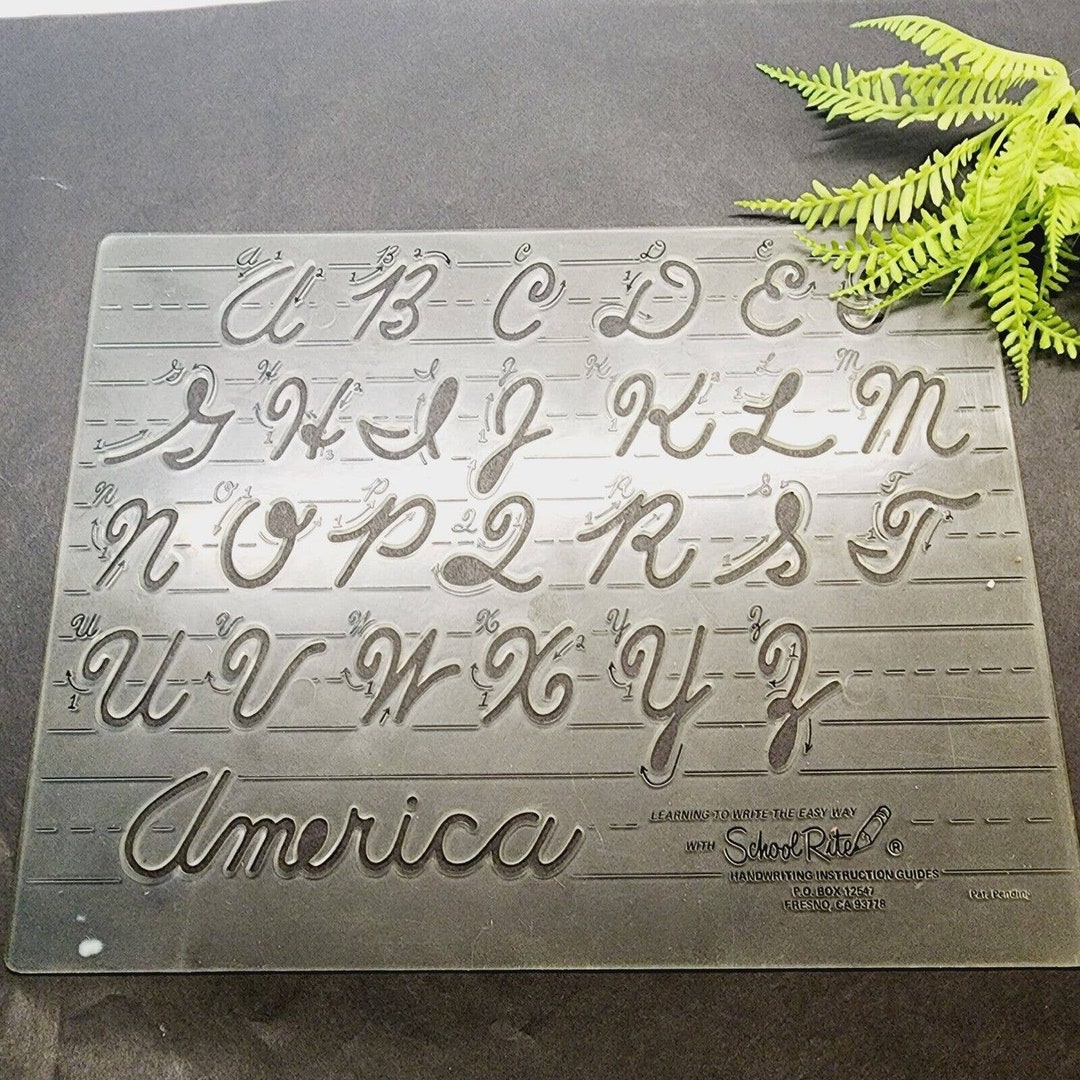 A B C D E
G H I J K L M
N O P Q R S T
U V W X Y Z
America
LEARNING TO WRITE THE EASY WAY
WITH SchoolRite ®
HANDWRITING INSTRUCTION GUIDES
P.O. BOX 12547
FRESNO, CA 93778
Pat. Pending